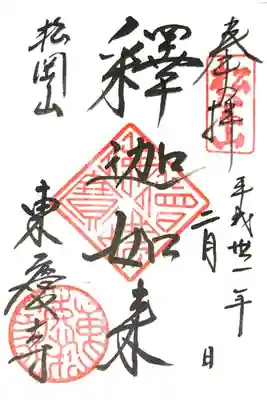 奉拝
松岡山
平成卅一年
二月 日
釋迦如来
松岡山
東慶寺